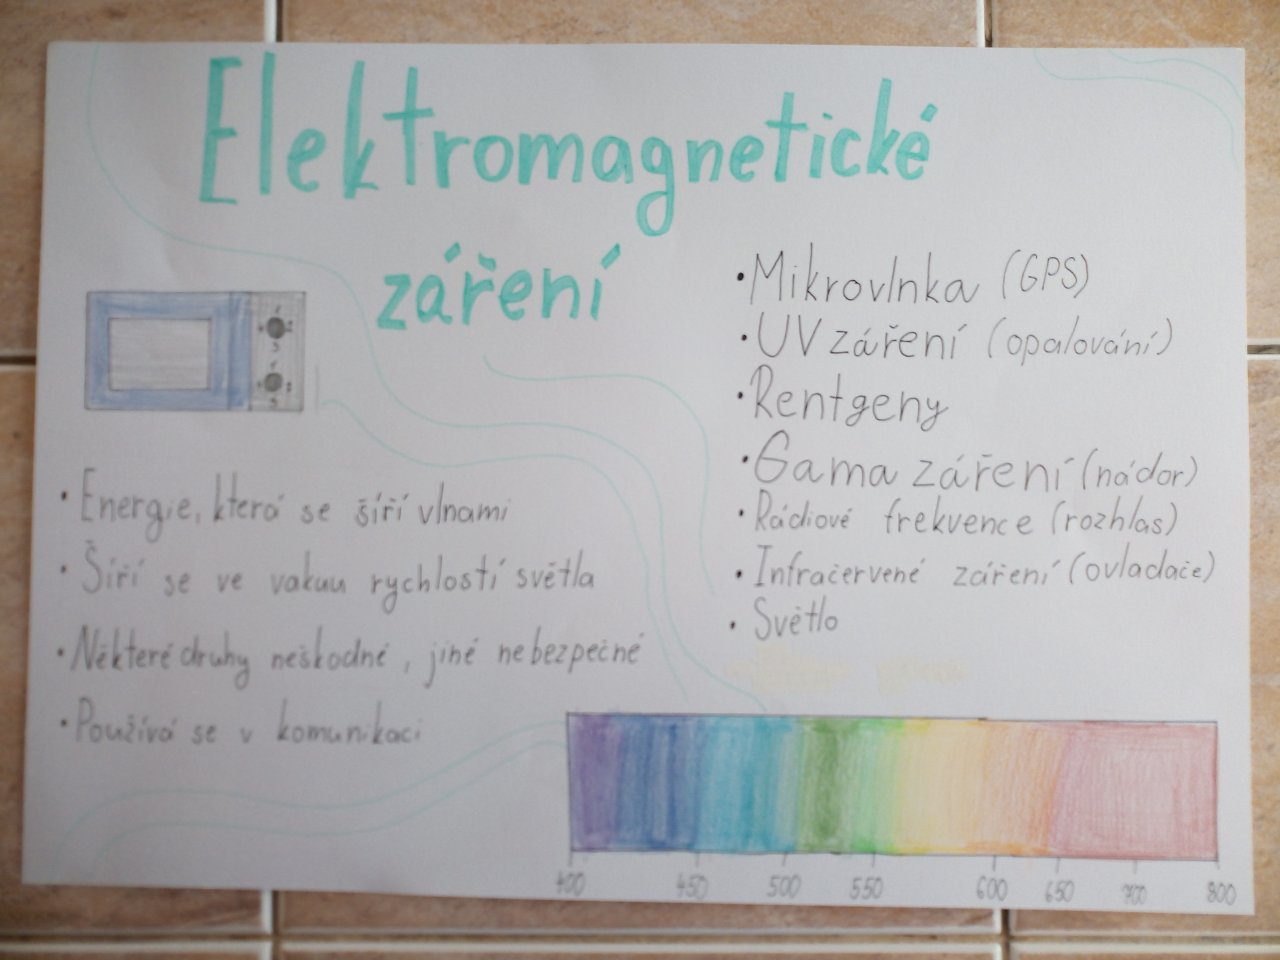 Elektromagnetické
záření
• Energie, která se šíří vlnami
• Šíří se ve vakuu rychlostí světla
• Některé druhy neškodné, jiné nebezpečné
• Používá se v komunikaci
• Mikrovlnka (GPS)
• UV záření (opalování)
• Rentgeny
• Gama záření (nádor)
• Rádiové frekvence (rozhlas)
• Infračervené záření (ovladače)
• Světlo
400 450 500 550 600 650 700 800